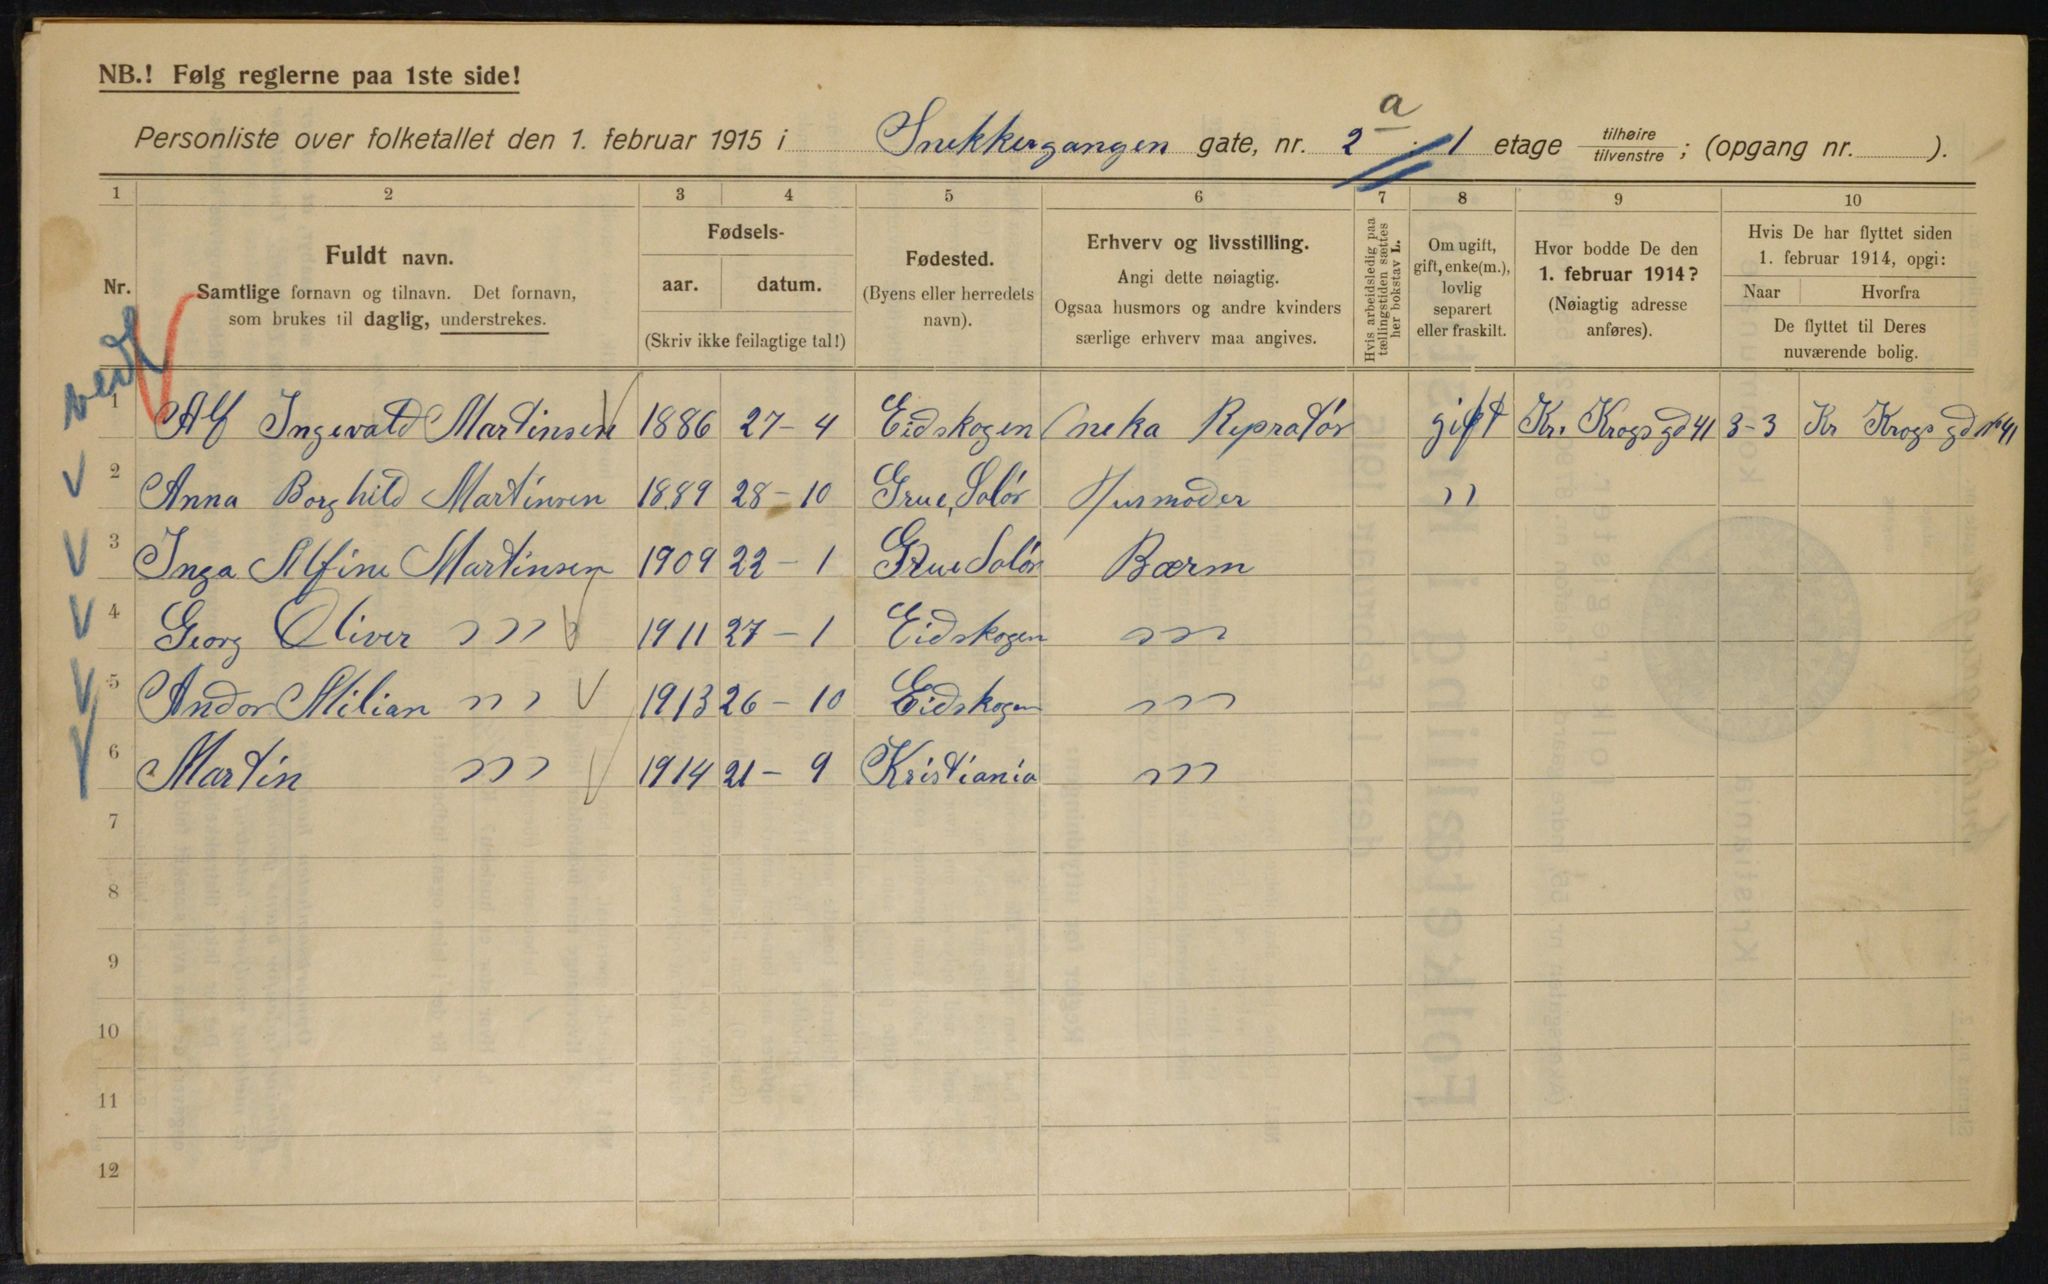 NB.! Følg reglerne paa 1ste side!
a
Personliste over folketallet den 1. februar 1915 i Snekkergangen gate, nr. 2 . 1 etage tilhøire/tilvenstre; (opgang nr. ).
1 2 3 4 5 6 7 8 9 10
Nr.
Fuldt navn.
Samtlige fornavn og tilnavn. Det fornavn,
som brukes til daglig, understrekes.
Fødsels-
aar. datum.
(Skriv ikke feilagtige tal!)
Fødested.
(Byens eller herredets
navn).
Erhverv og livsstilling.
Angi dette nøiagtig.
Ogsaa husmors og andre kvinders
særlige erhverv maa angives.
Hvis arbeidsledig paa
tællingstiden sættes
her bokstav L.
Om ugift,
gift, enke(m.),
lovlig
separert
eller fraskilt.
Hvor bodde De den
1. februar 1914?
(Nøiagtig adresse
anføres).
Hvis De har flyttet siden
1. februar 1914, opgi:
Naar Hvorfra
De flyttet til Deres
nuværende bolig.
1 Alf Ingevald Martinsen 1886 27-4 Eidskogen Repratør gift Kr. Krogs gd 41 3-3 Kr Krogs gd No 41
2 Anna Borghild Martinsen 1889 28-10 Grue, Solør Husmoder "
3 Inga Alfine Martinsen 1909 22-1 Grue Solør Bærm
4 Georg Oliver " " " 1911 27-1 Eidskogen " "
5 Andor Milian " " 1913 26-10 Eidskogen " "
6 Martin " " " 1914 21-9 Kristiania " "
7
8
9
10
11
12